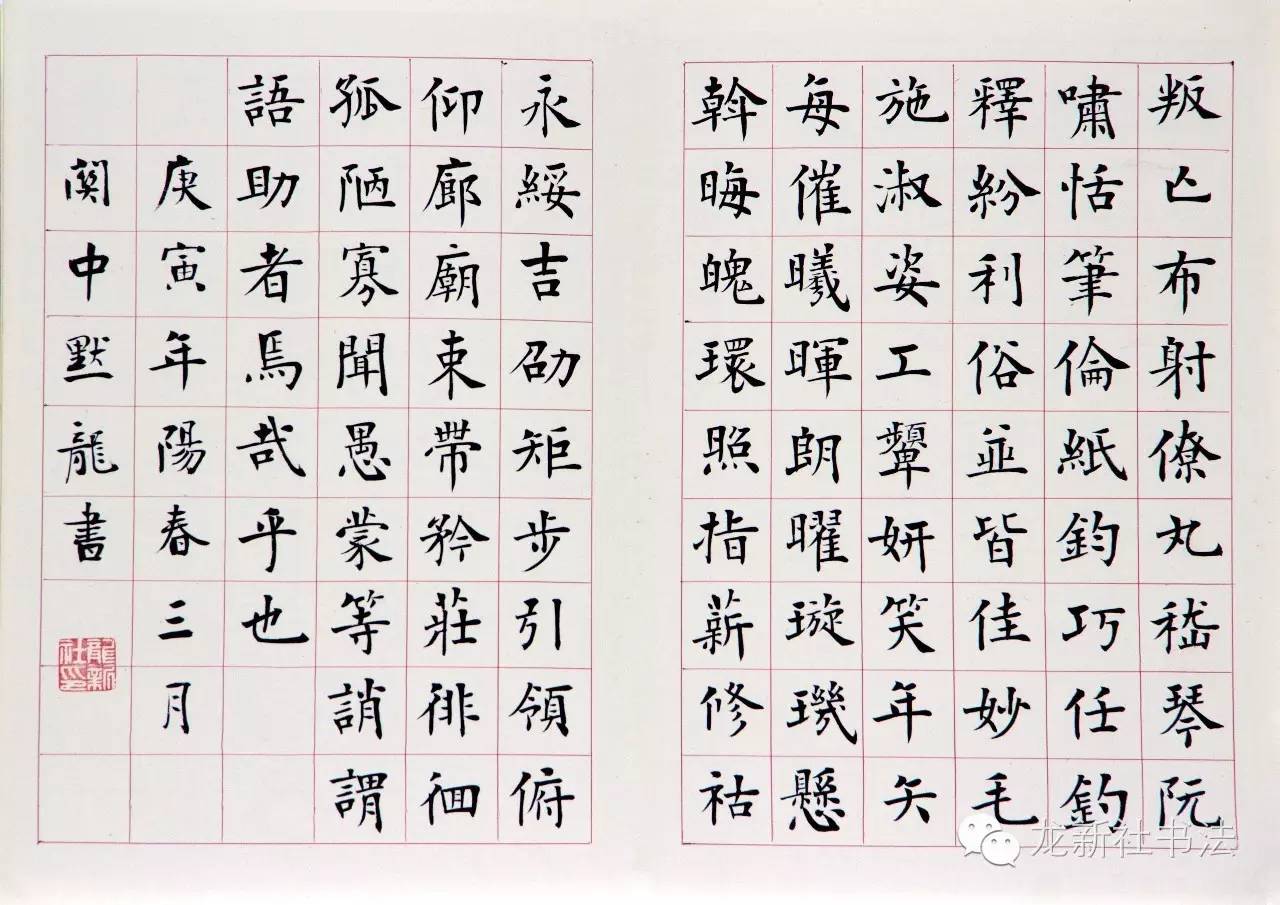 叛亡布射僚丸嵇琴阮
嘯恬筆倫紙鈞巧任釣
釋紛利俗並皆佳妙毛
施淑姿工顰妍笑年矢
每催曦暉朗曜璇璣懸
斡晦魄環照指薪修祜
永綏吉劭矩步引領俯
仰廊廟束帶矜莊徘徊
孤陋寡聞愚蒙等誚謂
語助者焉哉乎也
庚寅年陽春三月
関中默龍書
龍新社印
龙新社书法